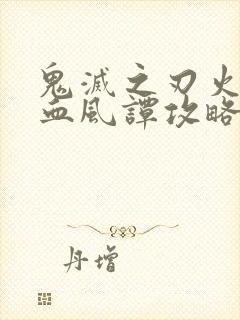 鬼滅之刃火
血風譚攻略
丹增